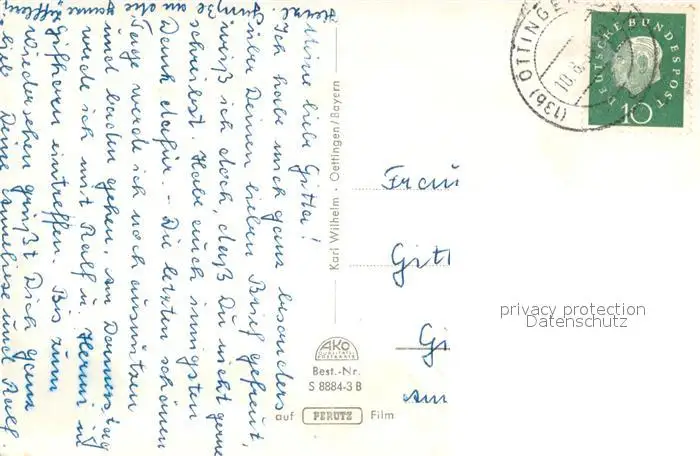 Meine liebe Gitta!
Ich habe mich ganz besonders
über Deinen lieben Brief gefreut,
weiß ich doch, daß Du nicht gerne
schreibst. Habe auch innigsten
Dank dafür. - Die letzten schönen
Tage werde ich noch ausnützen
und baden gehen. Am Donnerstag
werde ich mit Ralf u. Henni in
Gifhorn eintreffen. Bis zum
Wiedersehen grüßt Dich ganz
lieb Deine Anneliese und Ralf.
Herzl. Grüße an die
ganze
Karl Wilhelm · Oettingen/Bayern
AKO
QUALITÄTS
POSTKARTE
Best.-Nr.
S 8884-3 B
auf PERUTZ Film
(13b) ÖTTINGEN
10.8.
DEUTSCHE BUNDESPOST
10
Frau
Gitt
Gi
Am
privacy protection
Datenschutz